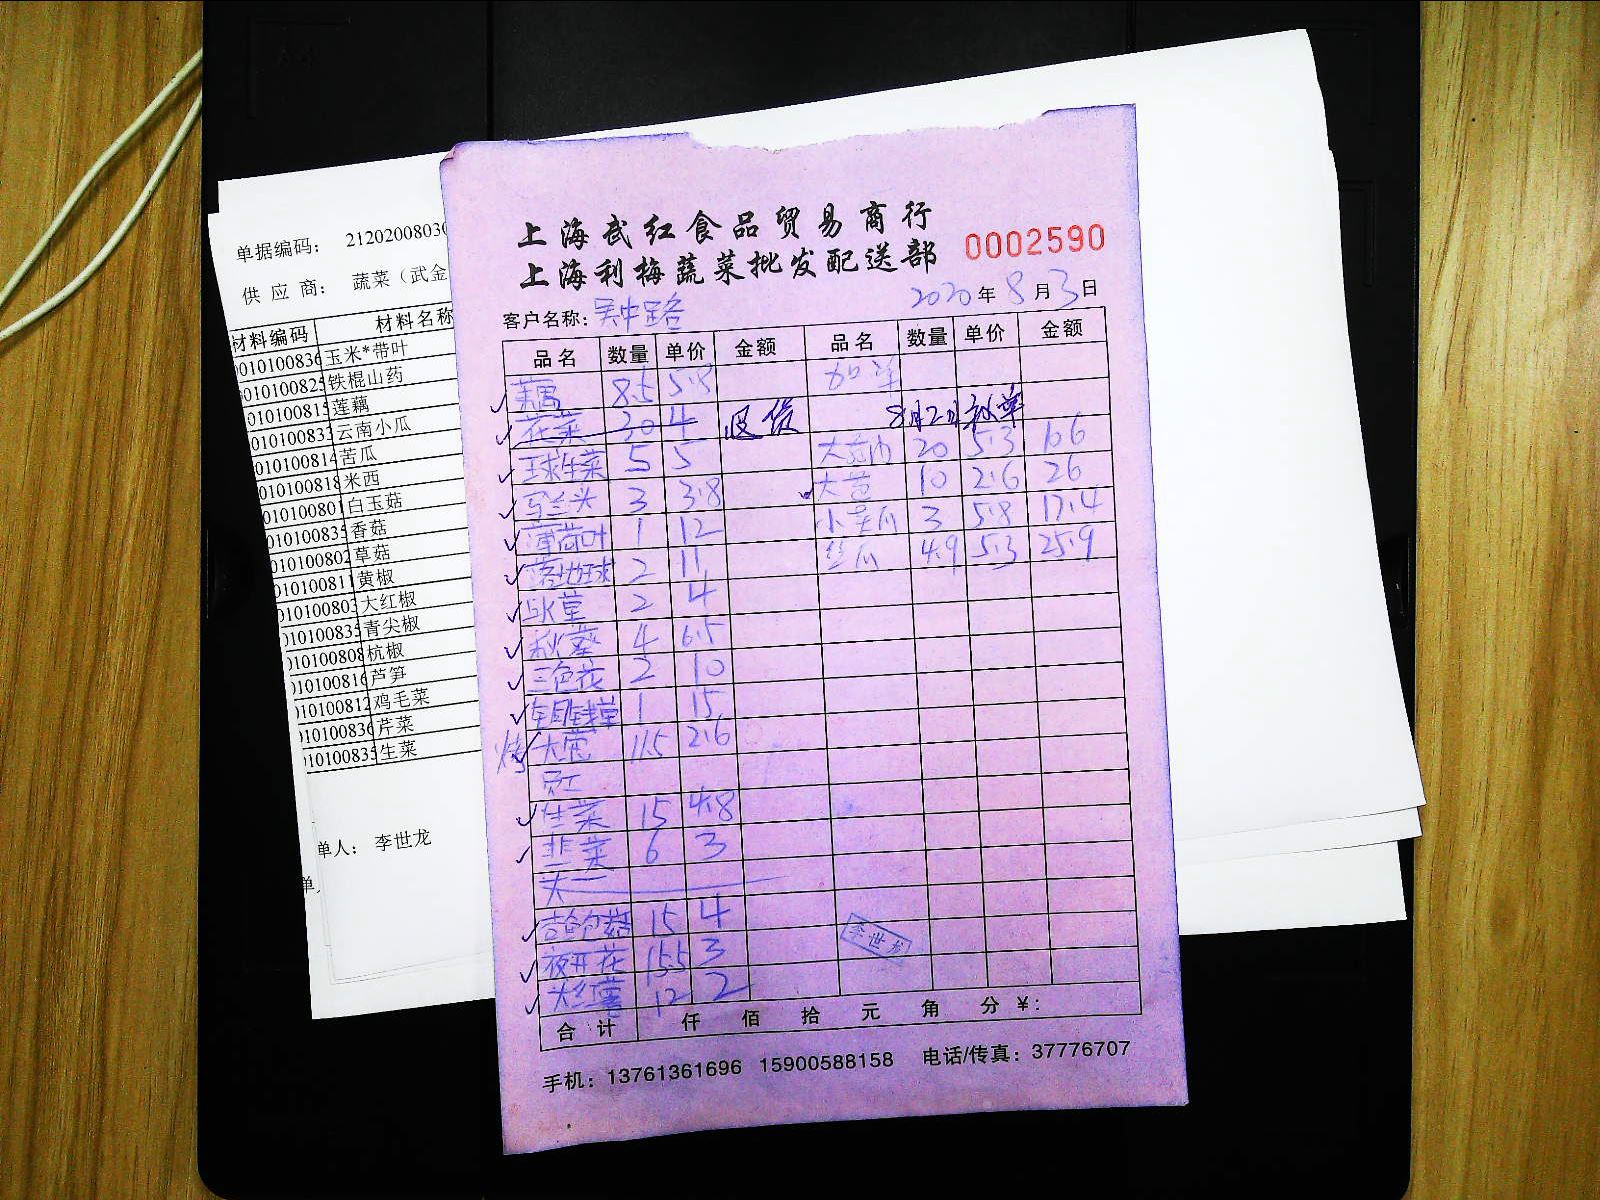 单据编码： 21202008030
供 应 商： 蔬菜（武金
材料编码 材料名称
010100836 玉米*带叶
010100825 铁棍山药
010100815 莲藕
010100833 云南小瓜
010100814 苦瓜
010100818 米西
010100801 白玉菇
010100835 香菇
010100802 草菇
010100811 黄椒
010100803 大红椒
010100835 青尖椒
010100808 杭椒
010100816 芦笋
010100812 鸡毛菜
010100836 芹菜
010100835 生菜
单人： 李世龙
单
上海武红食品贸易商行
上海利梅蔬菜批发配送部
0002590
2020年8月3日
客户名称：吴中路
品名 数量 单价 金额 品名 数量 单价 金额
藕 8.5 5.8 加单
花菜 30 4 退货 8月2月补单
球生菜 5 5 20 5.3 106
马兰头 3 3.8 大葱 10 2.6 26
薄荷叶 1 12 小黄瓜 3 5.8 17.4
2 11 丝瓜 4.9 5.3 25.9
冰草 2 4
秋葵 4 6.5
三色花 2 10
1 15
烤 大葱 11.5 2.6
员工
生菜 15 4.8
韭菜 6 3
15 4
夜开花 15.5 3
大红薯 12 2
李世龙
合计 仟 佰 拾 元 角 分 ¥：
手机：13761361696 15900588158 电话/传真：37776707